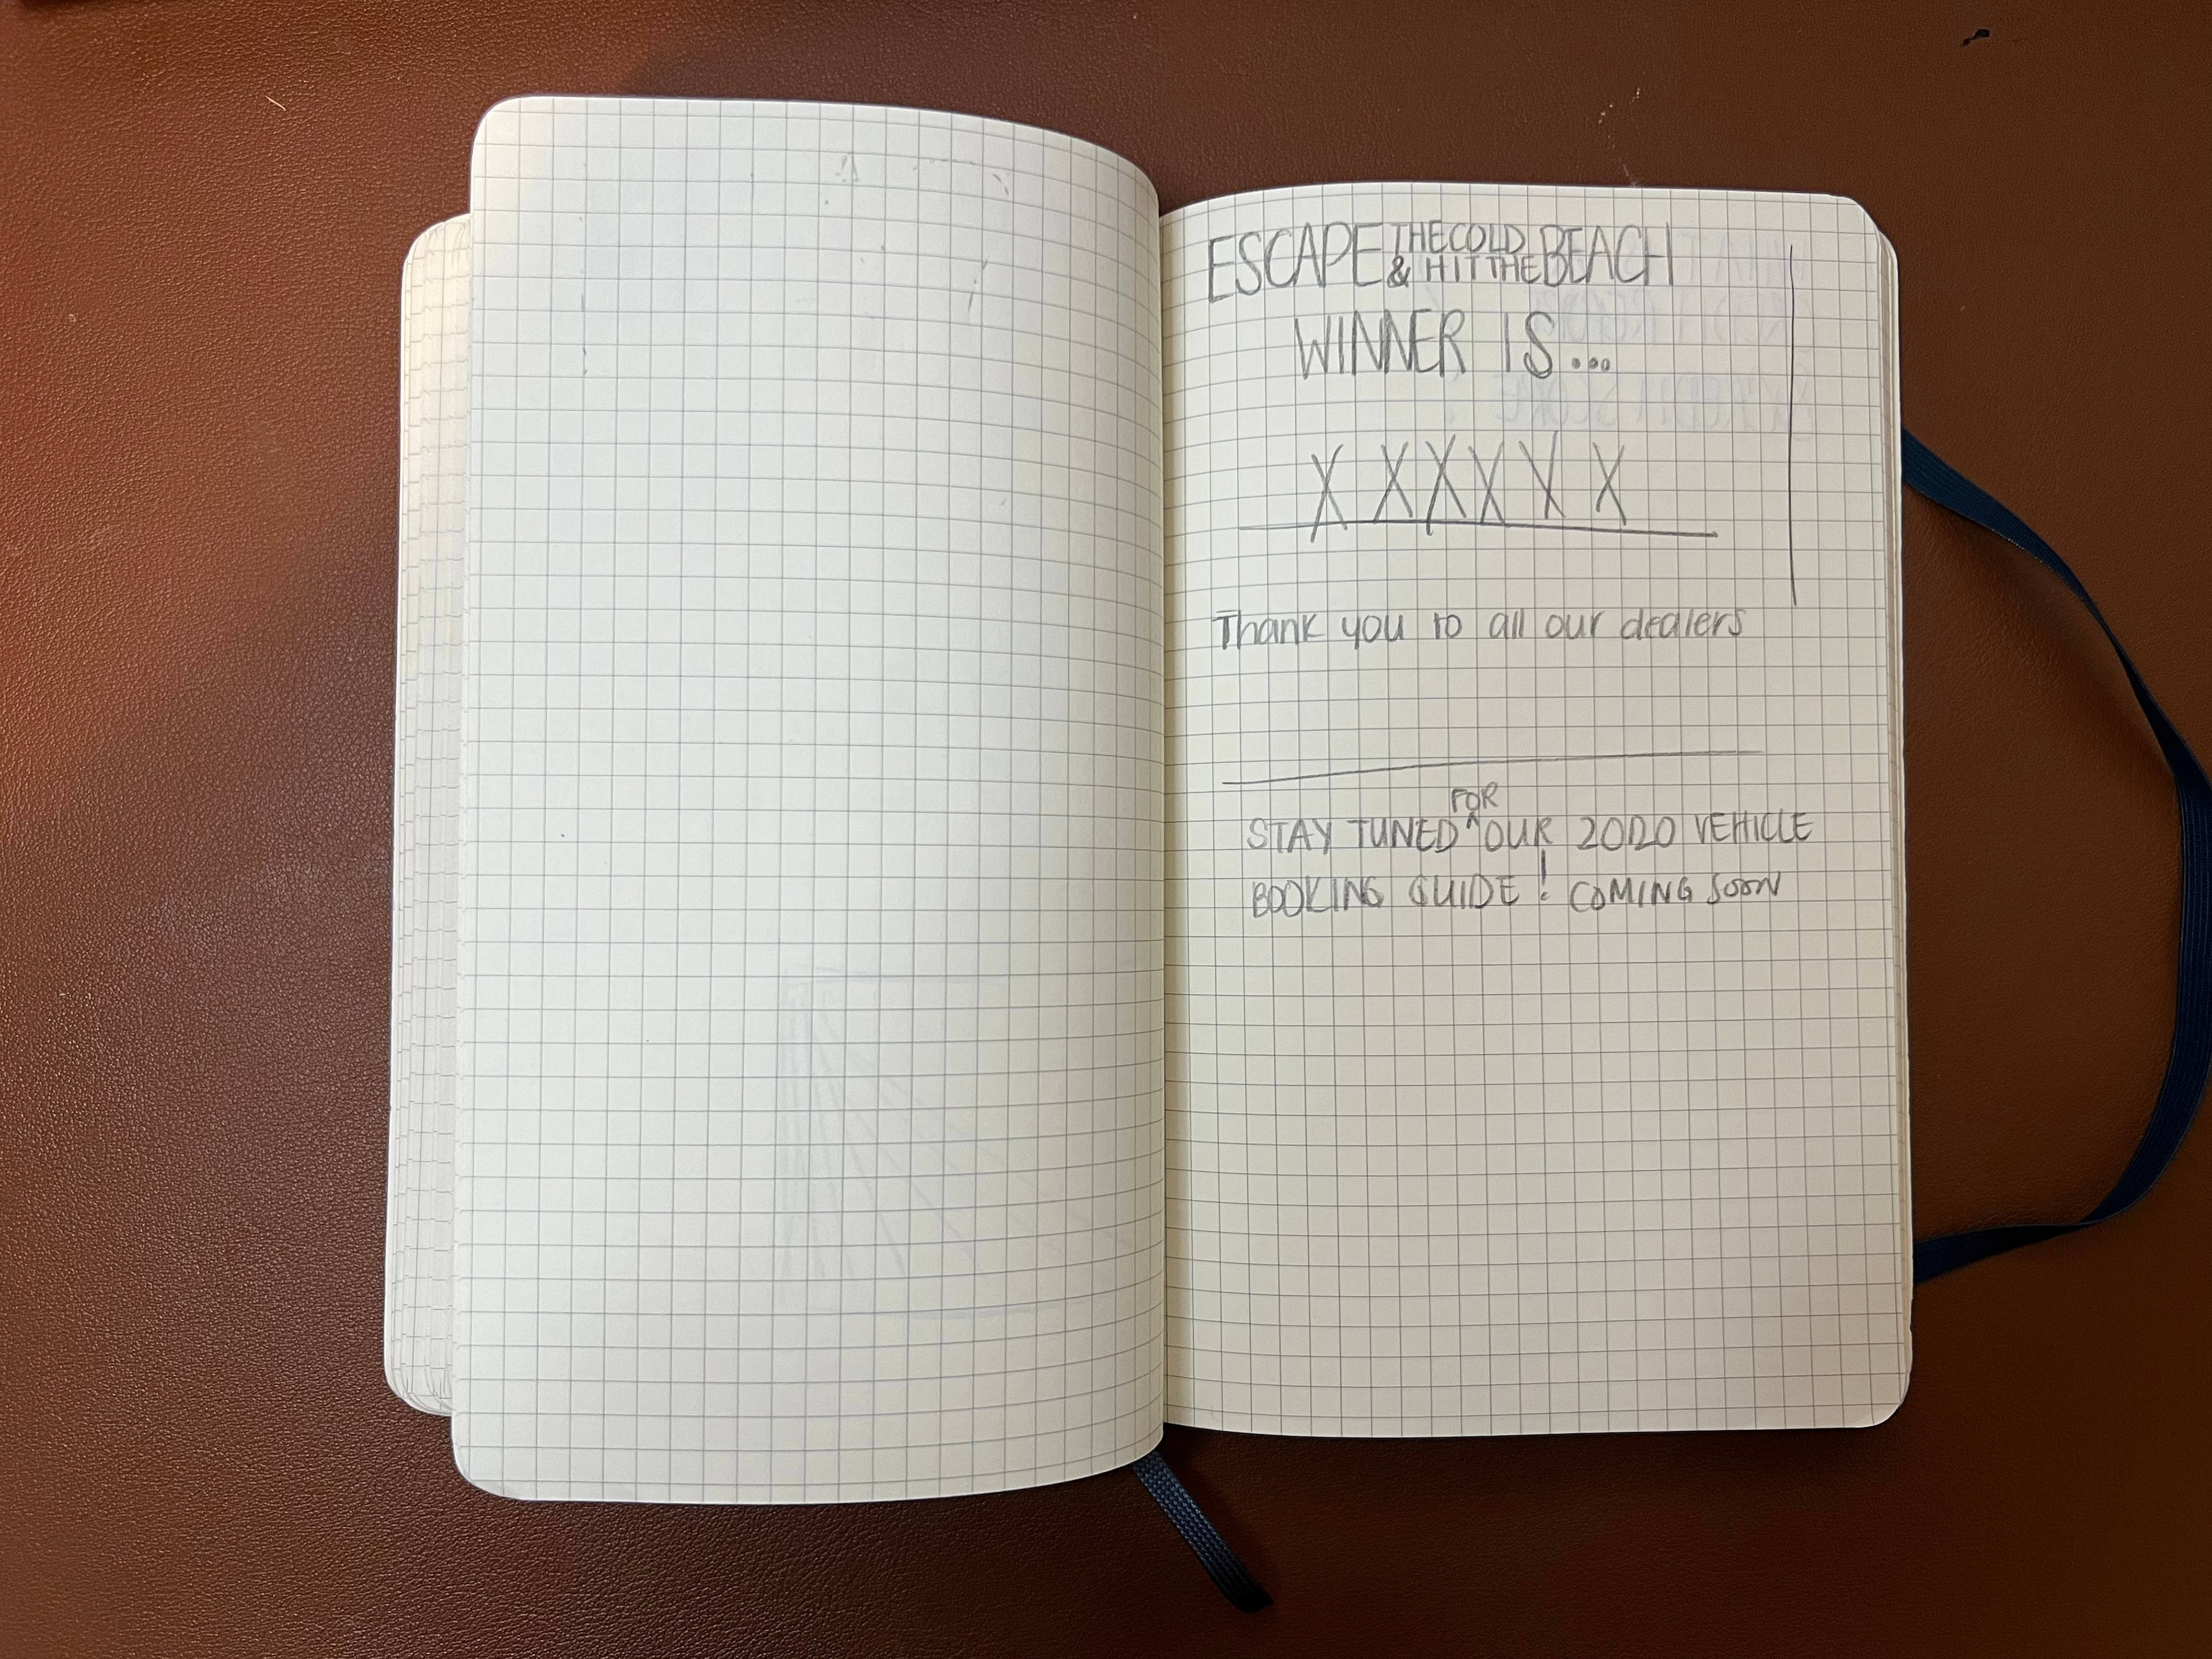 ESCAPE THE COLD & HIT THE BEACH
WINNER IS...
X XXXX X
Thank you to all our dealers
STAY TUNED FOR OUR 2020 VEHICLE
BOOKING GUIDE! COMING SOON